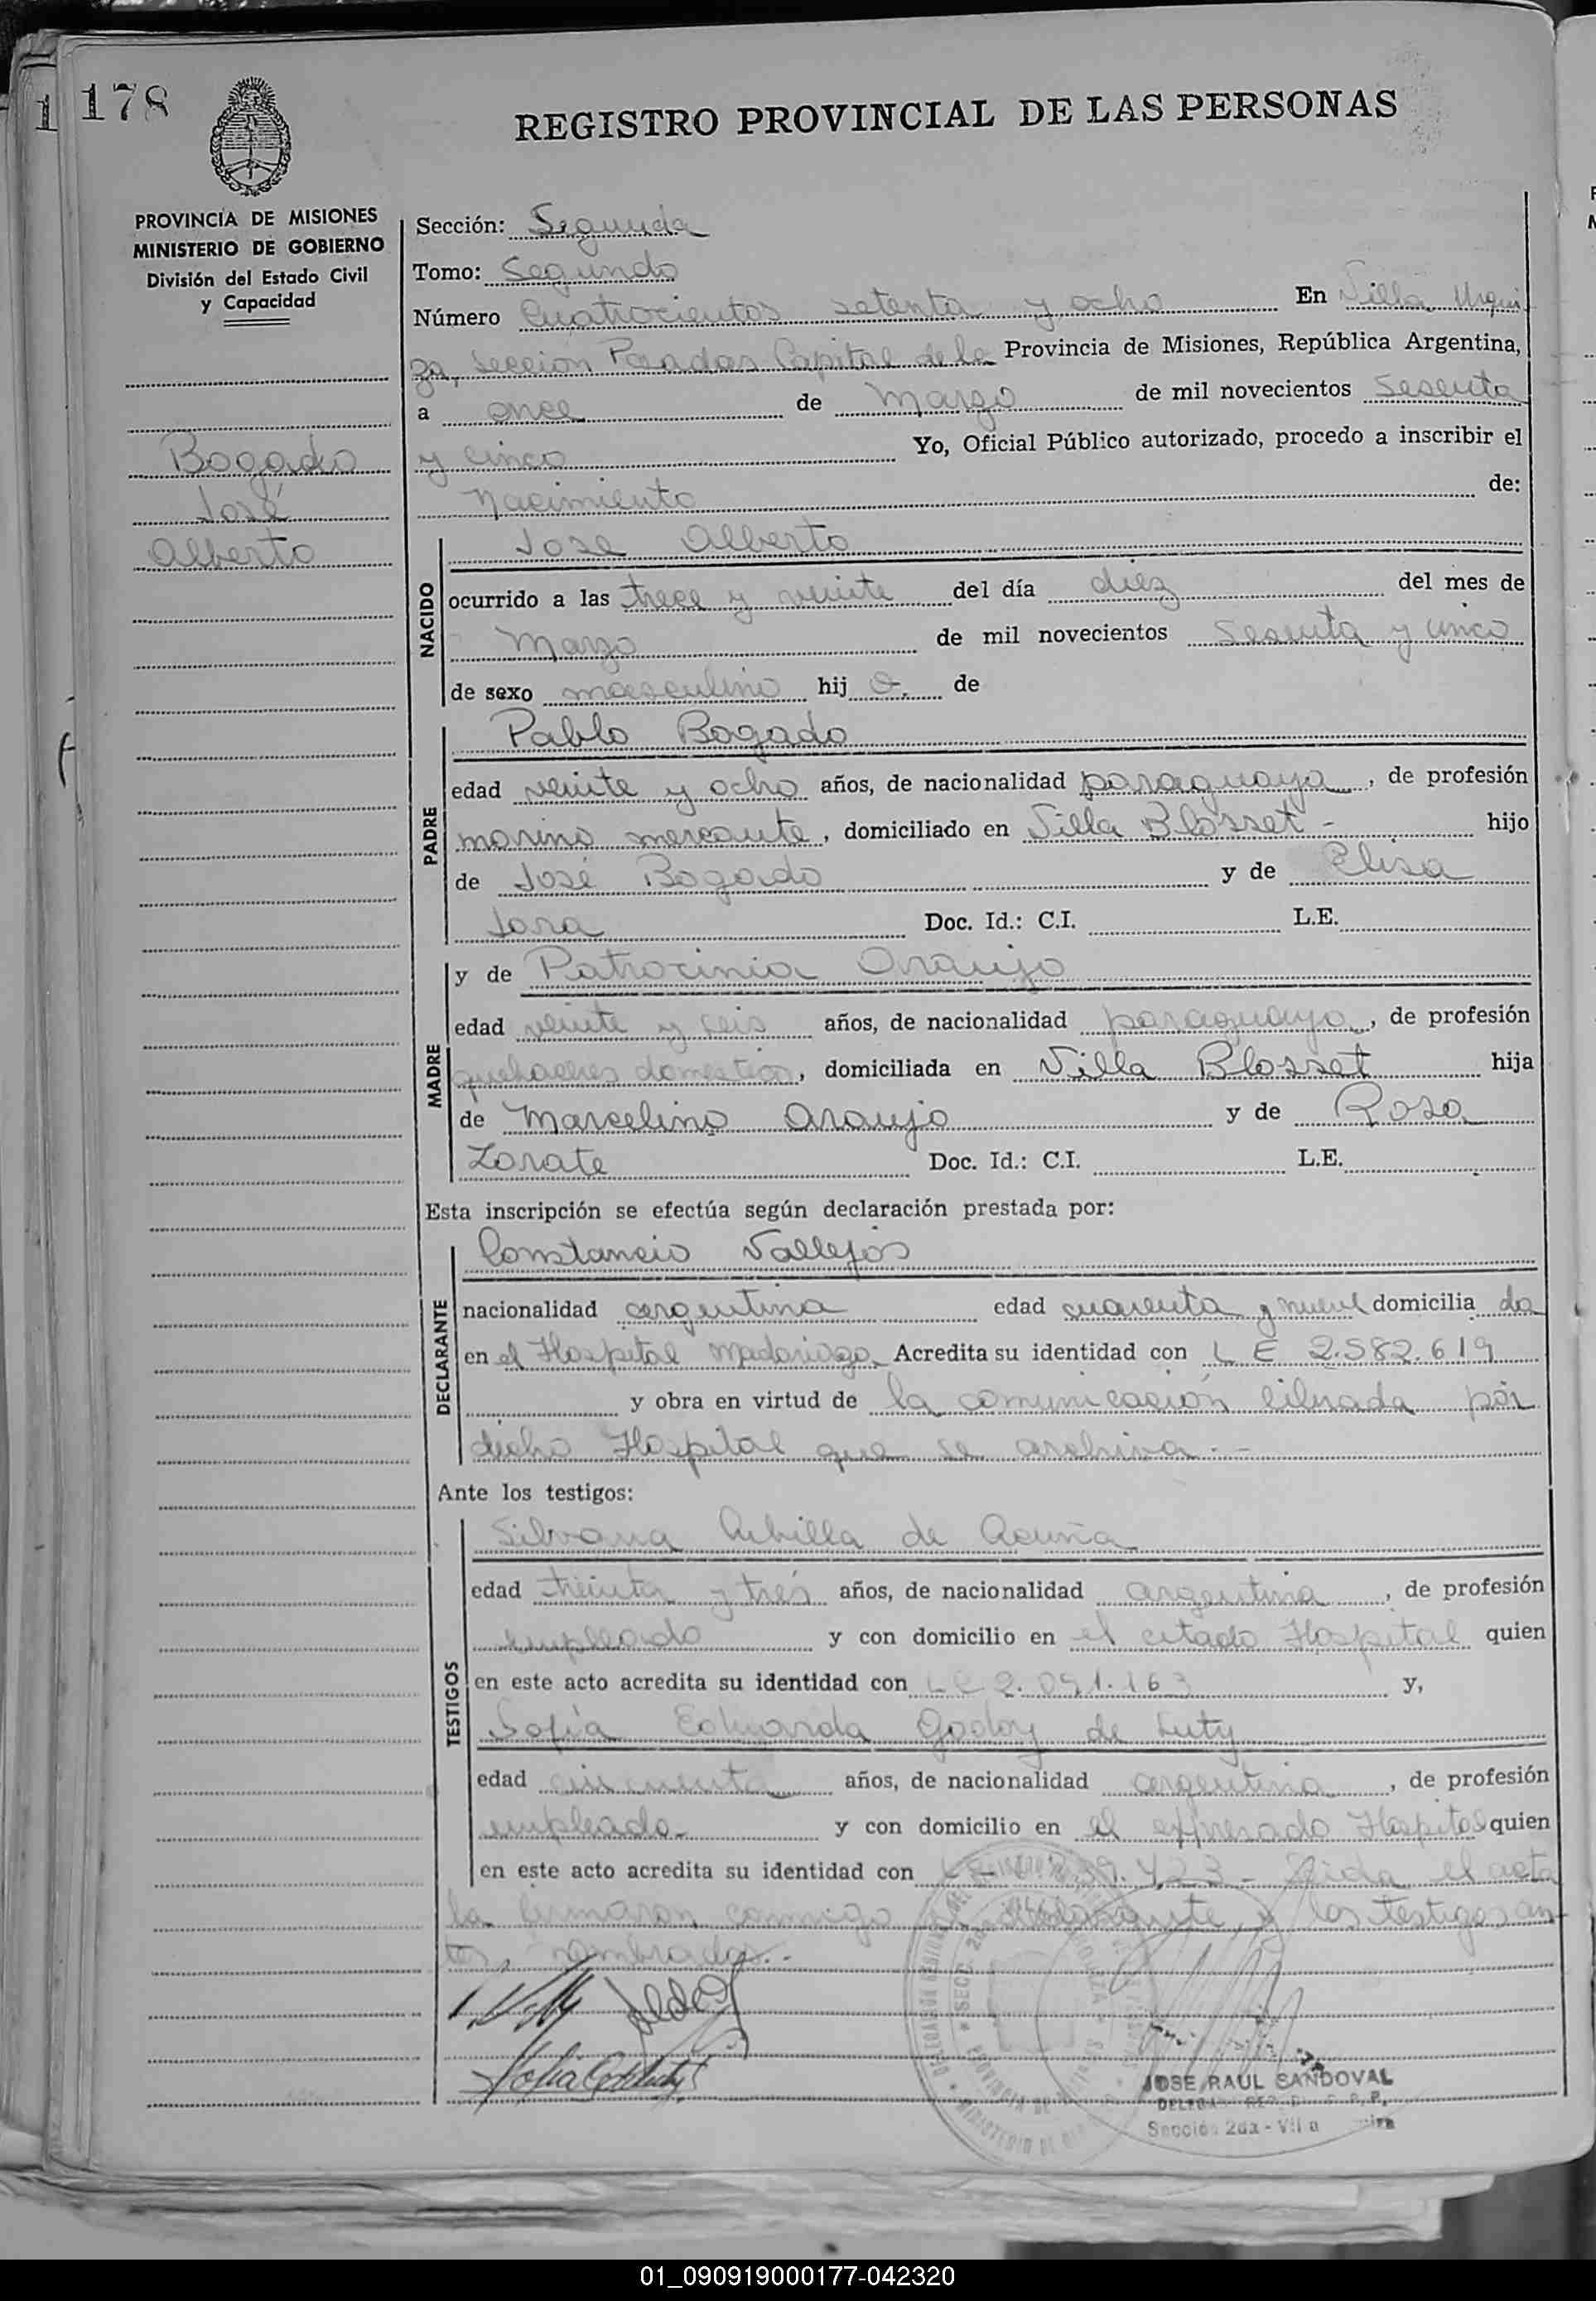 1 178
REGISTRO PROVINCIAL DE LAS PERSONAS
PROVINCIA DE MISIONES
MINISTERIO DE GOBIERNO
División del Estado Civil
y Capacidad
Bogado
José
Alberto
Sección: Segunda
Tomo: Segundo
Número Cuatrocientos setenta y ocho En Villa Urqui
za, Seccion Posadas Capital de la Provincia de Misiones, República Argentina,
a once de Marzo de mil novecientos Sesenta
y cinco Yo, Oficial Público autorizado, procedo a inscribir el
Nacimiento de:
NACIDO
Jose Alberto
ocurrido a las trece y veinte del día diez del mes de
Marzo de mil novecientos Sesenta y cinco
de sexo masculino hij o. de
PADRE
Pablo Bogado
edad veinte y ocho años, de nacionalidad paraguaya, de profesión
marino mercante, domiciliado en Villa Blosset - hijo
de José Bogado y de Elisa
Jara Doc. Id.: C.I. L.E.
MADRE
y de Patrocinia Araujo
edad veinte y seis años, de nacionalidad paraguaya, de profesión
quehaceres domesticos, domiciliada en Villa Blosset hija
de Marcelino Araujo y de Rosa
Zarate Doc. Id.: C.I. L.E.
Esta inscripción se efectúa según declaración prestada por:
DECLARANTE
Constancio Vallejos
nacionalidad argentina edad cuarenta y nueve domicilia do
en el Hospital Madariaga. Acredita su identidad con L E 2.582.619
y obra en virtud de la comunicación librada por
dicho Hospital que se archiva.-
Ante los testigos:
TESTIGOS
Silvana de Acuña
edad treinta y tres años, de nacionalidad argentina, de profesión
empleado y con domicilio en el citado Hospital quien
en este acto acredita su identidad con LC 2.091.163 y,
Sofía Eduarda Godoy de Luty
edad cincuenta años, de nacionalidad argentina, de profesión
empleada- y con domicilio en el expresado Hospital quien
en este acto acredita su identidad con 423 - Leida el acta
la firmaron conmigo declarante y los testigos an-
tes nombrados.-
JOSE RAUL SANDOVAL
Sección 2da - Villa
01_090919000177-042320